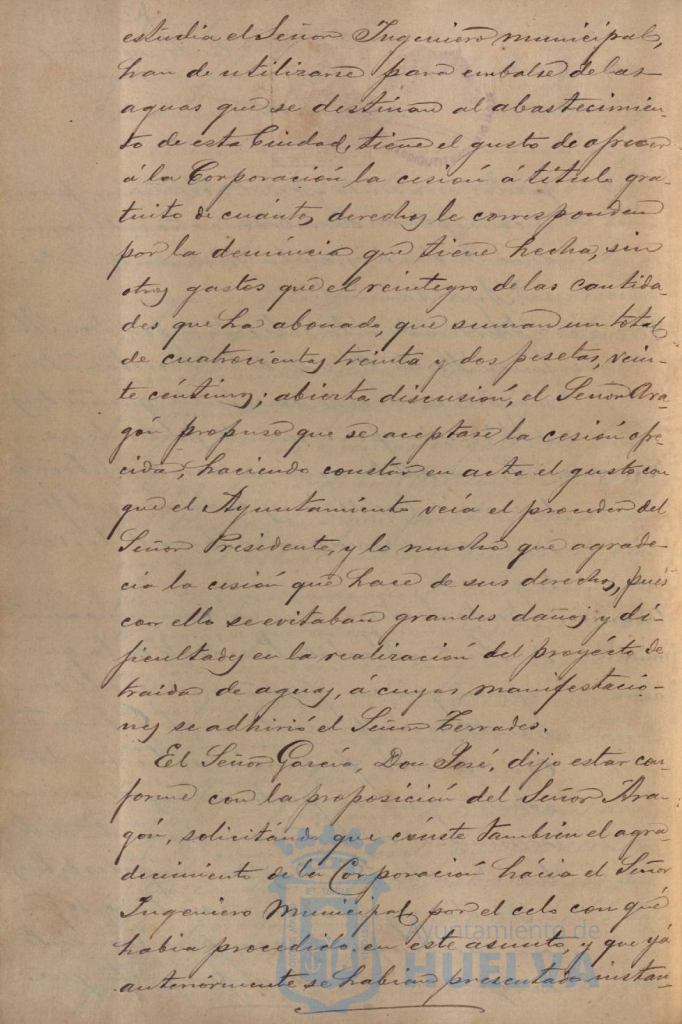 estudia el Señor Ingeniero municipal,
han de utilizarse para embalse de las
aguas que se destinan al abastecimien-
to de esta Ciudad, tiene el gusto de ofrecer
á la Corporación la cesión á título gra-
tuito de cuántos derechos le corresponden
por la denuncia que tiene hecha, sin
otros gastos que el reintegro de las cantida-
des que ha abonado, que suman un total
de cuatrocientas treinta y dos pesetas, vein-
te céntimos; abierta discusión, el Señor Ara-
gón propuso que se aceptase la cesión ofre-
cida, haciendo constar en acta el gusto con
que el Ayuntamiento veía el proceder del
Señor Presidente, y lo mucho que agrade-
cia la cesión que hace de sus derechos, pués
con ello se evitaban grandes daños y di-
ficultades en la realización del proyécto de
traida de aguas, á cuyas manifestacio-
nes se adhirió el Señor Terrades.
El Señor García, Don José, dijo estar con-
forme con la proposición del Señor Ara-
gón, solicitando que cónste también el agra-
decimiento de la Corporación hácia el Señor
Ingeniero Municipal, por el celo con qué
habia procedido en este asunto, y que yá
anteriormente se habian presentado instan-
Ayuntamiento de
HUELVA